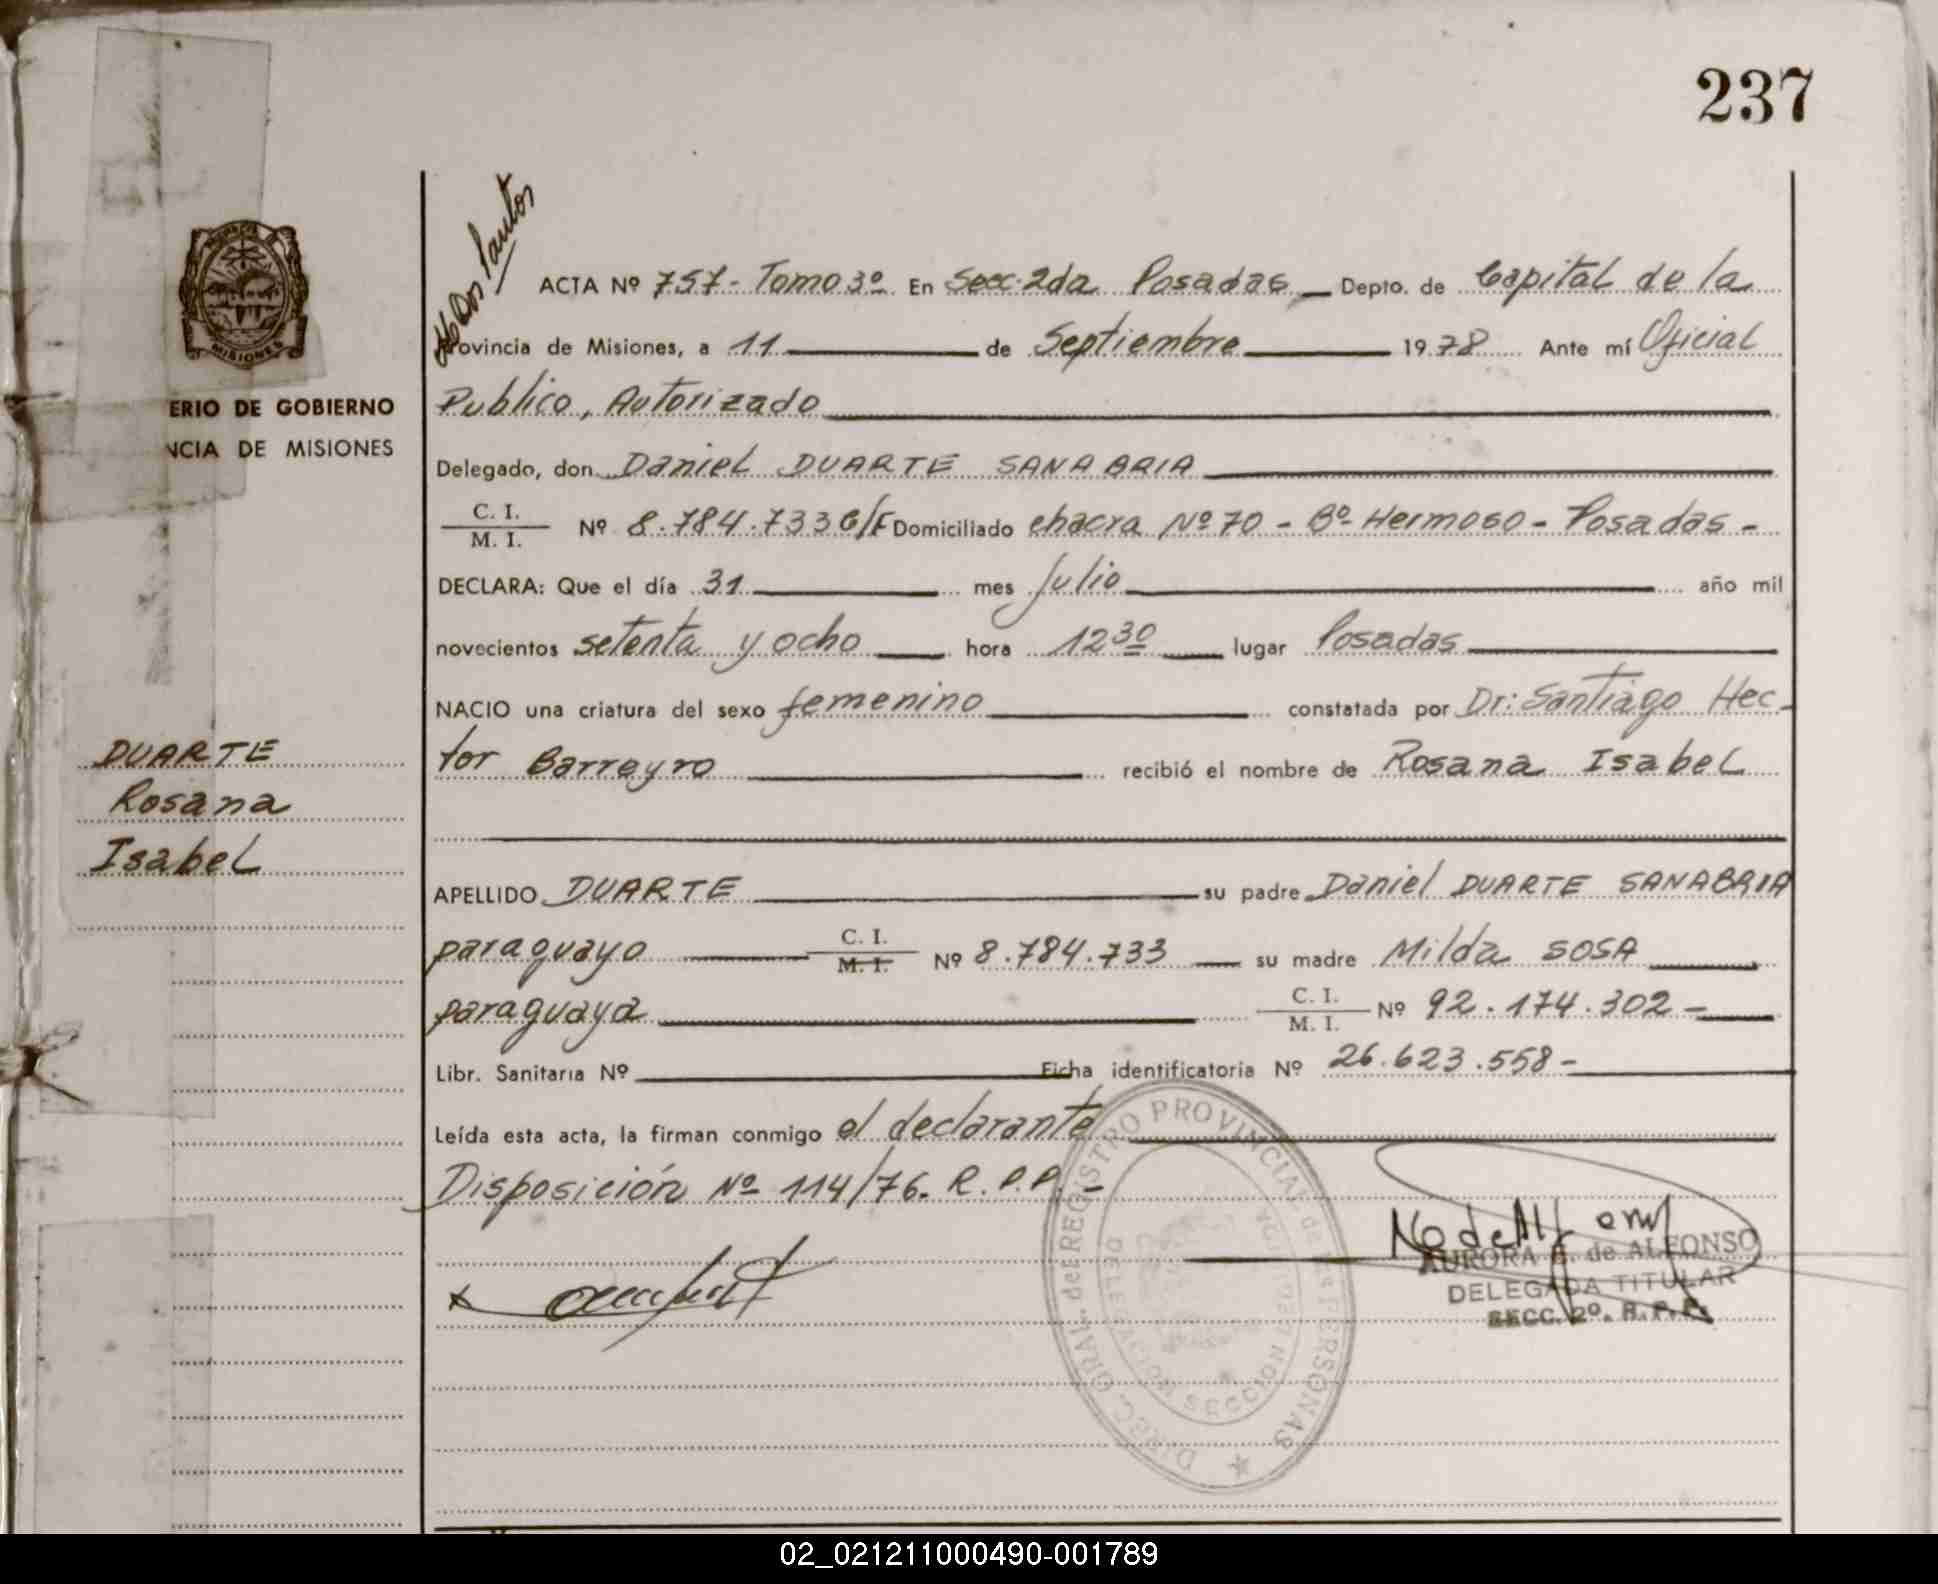 237
dos Santos
ACTA Nº 757 - Tomo 3º En Secc. 2da Posadas Depto. de Capital de la
Provincia de Misiones, a 11 de Septiembre 19 78 Ante mí Oficial
Publico, Autorizado
Delegado, don Daniel DUARTE SANABRIA
C. I.
M. I.
Nº 8.784.733 C/F Domiciliado chacra Nº 70 - Bº Hermoso - Posadas -
DECLARA: Que el día 31 mes Julio año mil
novecientos setenta y ocho hora 12 30 lugar Posadas
NACIO una criatura del sexo femenino constatada por Dr: Santiago Hec-
tor Barreyro recibió el nombre de Rosana Isabel
APELLIDO DUARTE su padre Daniel DUARTE SANABRIA
paraguayo C. I. M. I. Nº 8.784.733 su madre Milda SOSA
paraguaya C. I. M. I. Nº 92.174.302 -
Libr. Sanitaria Nº Ficha identificatoria Nº 26.623.558 -
Leída esta acta, la firman conmigo el declarante
Disposición Nº 114/76. R.P.P. -
MISIONES
ERIO DE GOBIERNO
NCIA DE MISIONES
DUARTE
Rosana
Isabel
DIREC. GRAL. del REGISTRO PROVINCIAL de las PERSONAS
DELEGACION SECCION
AURORA de ALFONSO
DELEGADA TITULAR
SECC. 2º. R.P.P.
02_021211000490-001789